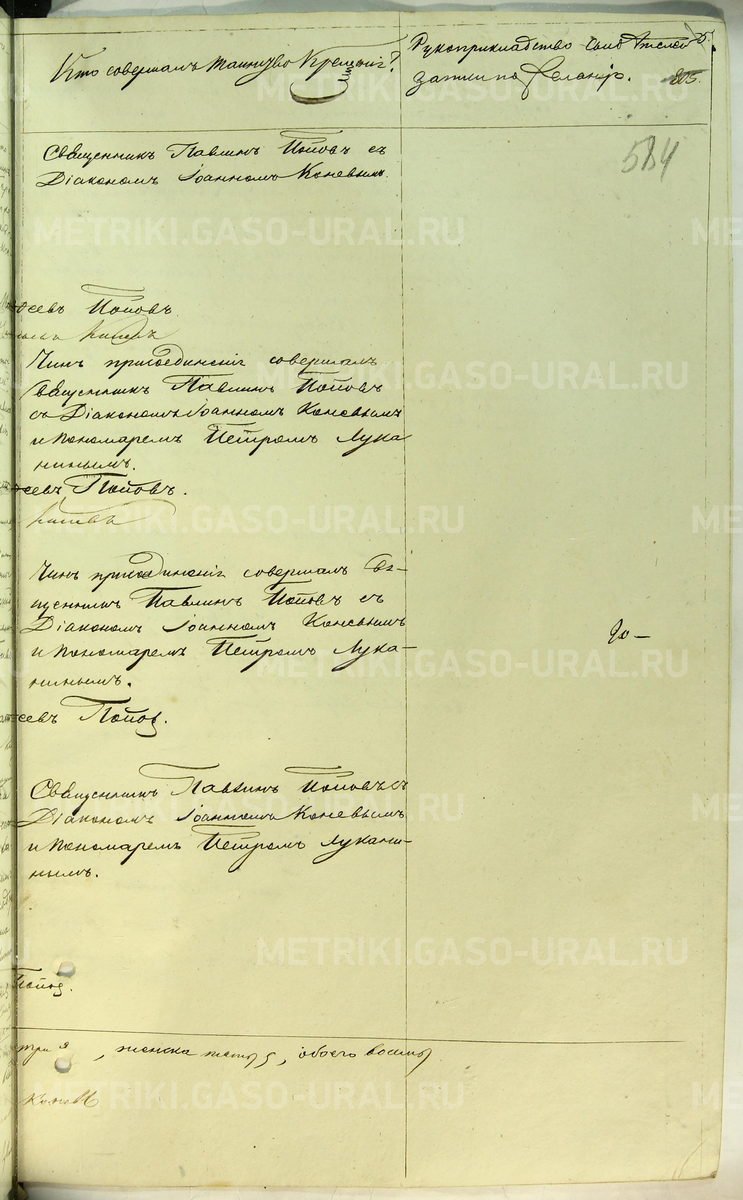 Кто совершалъ таинство Крещенія?
Рукоприкладство свидѣтелей
записи по желанію.
584
Священникъ Павлинъ Поповъ съ
Діакономъ Іоанномъ Коневымъ
Поповъ.
Чинъ присоединенія совершалъ
Священникъ Павлинъ Поповъ
съ Діакономъ Іоанномъ Коневымъ
и пономаремъ Петромъ Лука
нинымъ.
Поповъ.
Чинъ присоединенія совершалъ Свя-
щенникъ Павлинъ Поповъ съ
Діакономъ Іоанномъ Коневымъ
и пономаремъ Петромъ Лука-
нинымъ.
Поповъ.
Священникъ Павлинъ Поповъ съ
Діакономъ Іоанномъ Коневымъ
и пономаремъ Петромъ Лукани-
нымъ.
Поповъ.
три, женска пять, обоего восемь
Коневъ
METRIKI.GASO-URAL.RU